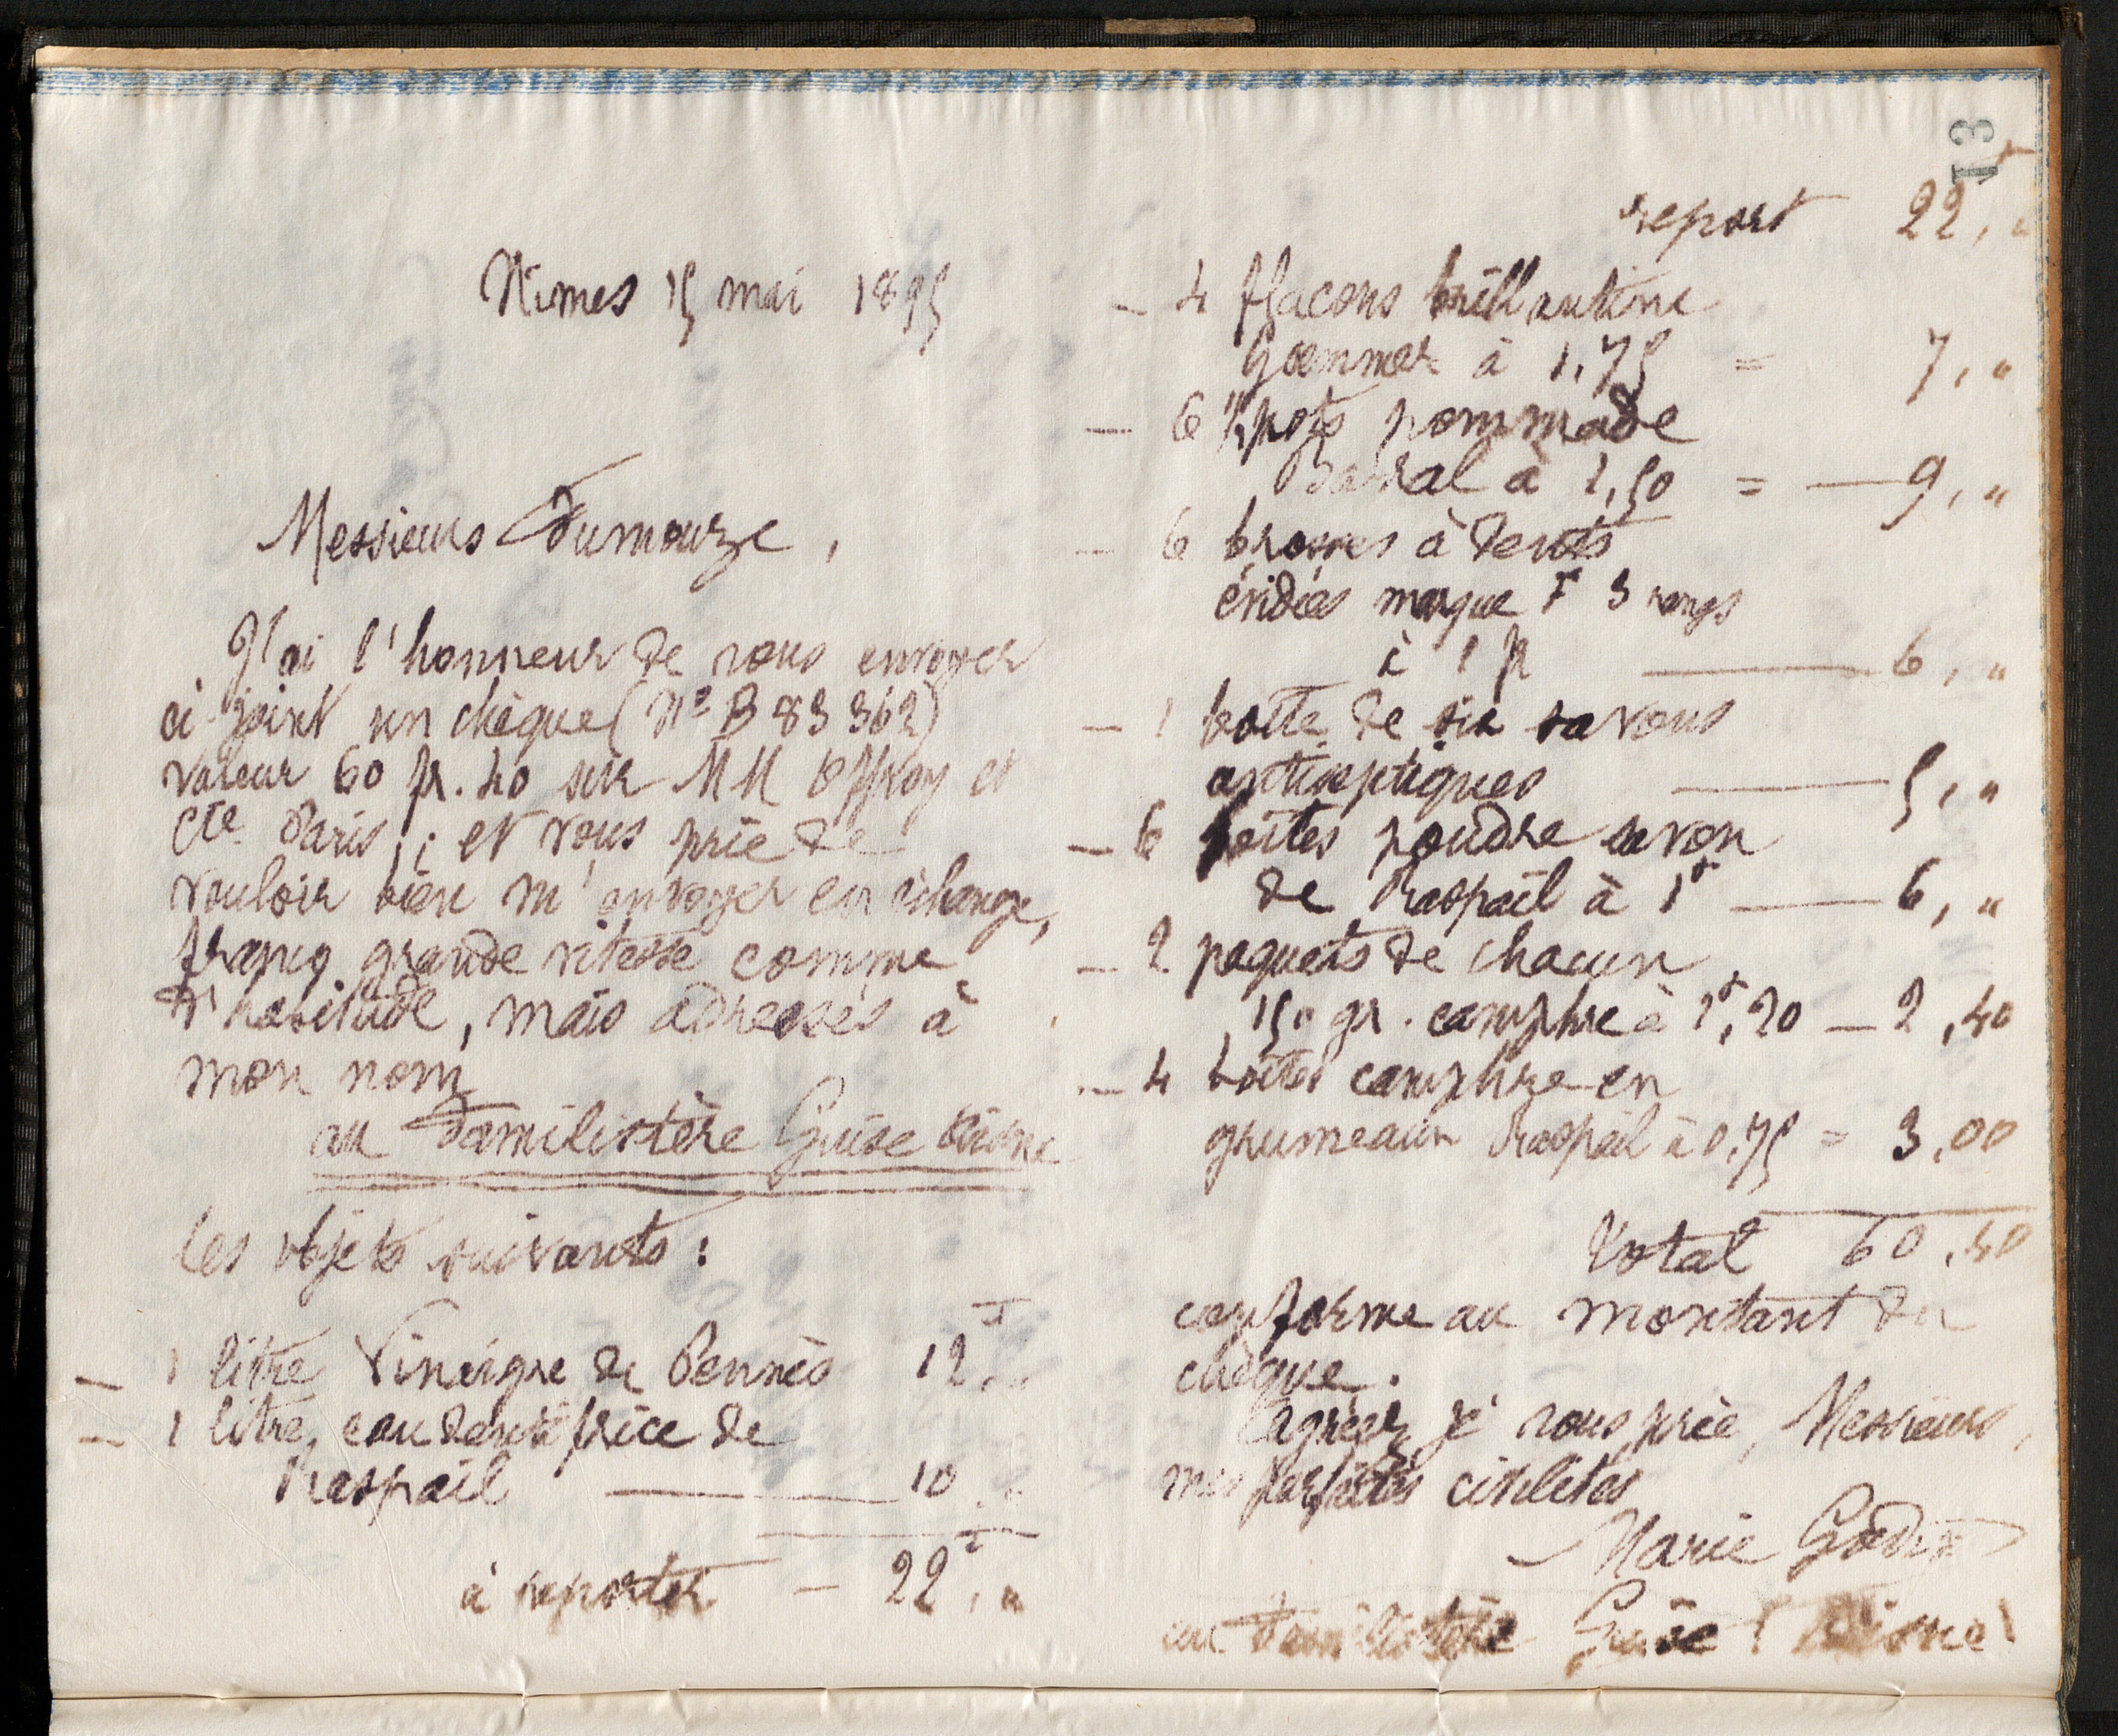 Nimes 15 mai 1895
Messieurs Dumouze,
J'ai l'honneur de vous envoyer
ci-joint un chèque (N° B 83 362)
valeur 60 fr. 40 sur MM Offroy et
Cie Paris; et vous prie de
vouloir bien m'envoyer en échange,
franco grande vitesse comme
d'habitude, mais adressés à
mon nom
au Familistère Guise Aisne
les objets suivants :
— 1 litre Vinaigre de Pennès 12 f „
— 1 litre, eau dentifrice de
Raspail — 10 „
à reporter — 22 f, „
13
report 22 f, „
— 4 flacons brillantine
à 1,75 = 7, „
— 6 pots pommade
à 1,50 = — 9, „
— 6 brosses à dents
marque F 3 rangs
à 1 fr — 6, „
— 1 boîte de six savons
antiseptiques — 5, „
— 6 boîtes poudre savon
de Raspail à 1f — 6, „
— 2 paquets de chacun
150 gr. camphre à 1f,20 — 2,40
— 4 boîtes camphre en
grumeaux Raspail à 0,75 = 3,00
Total 60,40
conforme au montant du
chèque.
Agréez je vous prie, Messieurs,
mes parfaites civilités
Marie Godin
au Familistère Guise (Aisne)